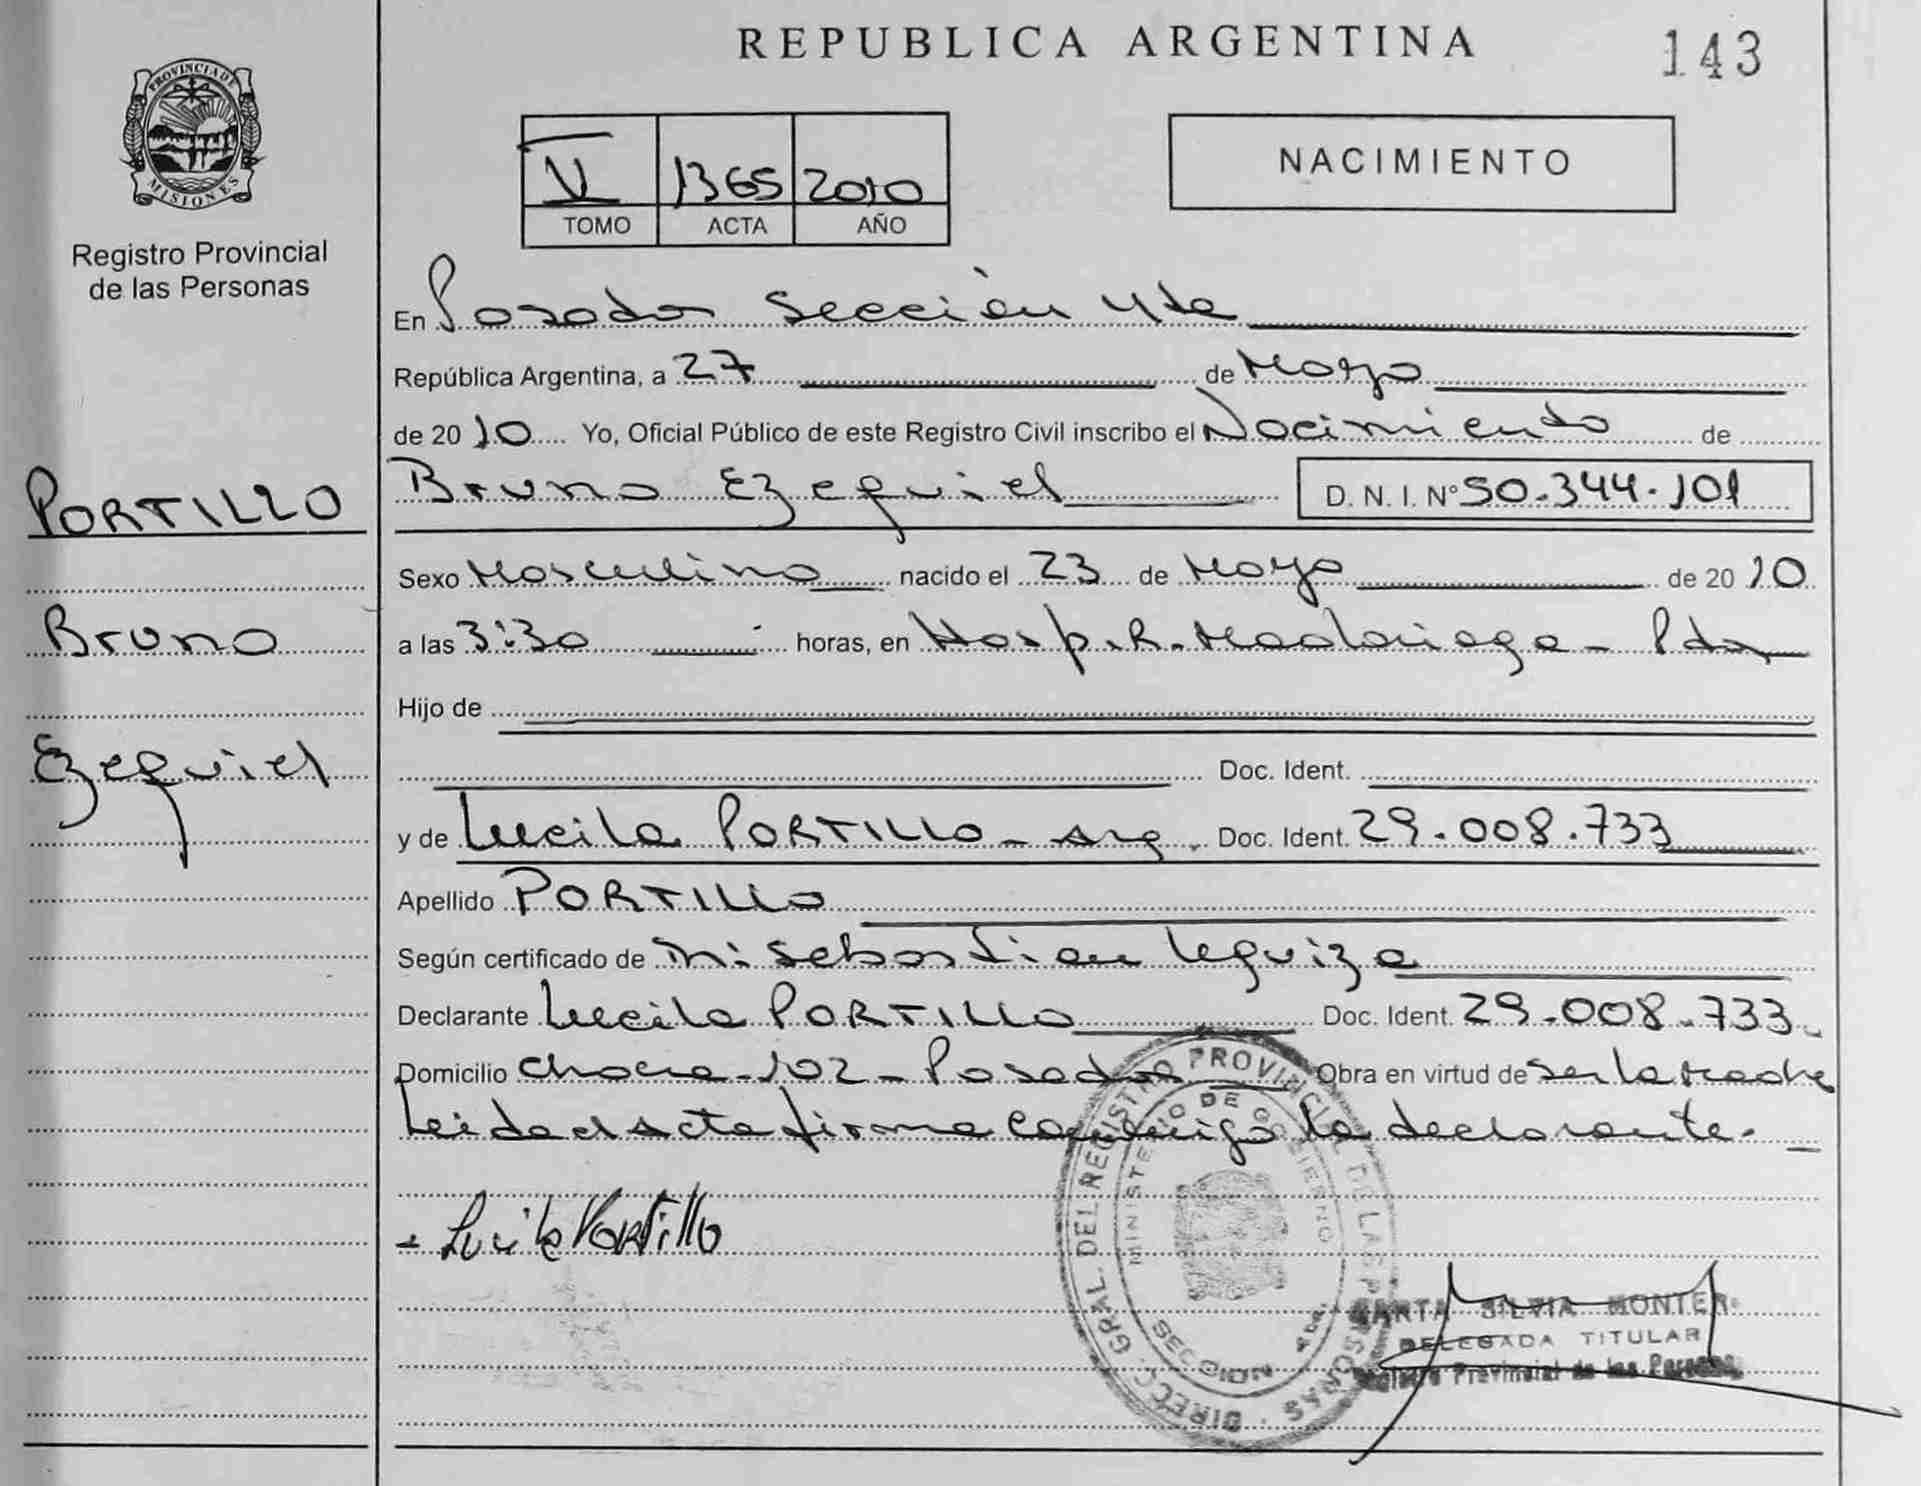 REPUBLICA ARGENTINA
143
PROVINCIA DE
MISIONES
Registro Provincial
de las Personas
V 1365 2010
TOMO ACTA AÑO
NACIMIENTO
En Posadas Sección 4ta
República Argentina, a 27 de Mayo
de 2010 Yo, Oficial Público de este Registro Civil inscribo el Nacimiento de
Bruno Ezequiel D. N. I. Nº 50.344.101
PORTILLO
Sexo Masculino nacido el 23 de Mayo de 2010
Bruno
a las 3:30 horas, en Hosp. R. Madariaga - Pdas
Hijo de
Ezequiel
Doc. Ident.
y de Lucila PORTILLO - Arg. Doc. Ident. 29.008.733
Apellido PORTILLO
Según certificado de Sebastian Leguiza
Declarante Lucila PORTILLO Doc. Ident. 29.008.733
Domicilio Chacra 102 - Posadas Obra en virtud de ser la madre
Leida el Acta firma conmigo la declarante.
Lucila Portillo
DIRECC. GRAL. DEL REGISTRO PROVINCIAL DE LAS PERSONAS
MINISTERIO DE GOBIERNO
SECCION 4ta.
MARTA SILVIA
DELEGADA TITULAR
Registro Provincial de las Personas